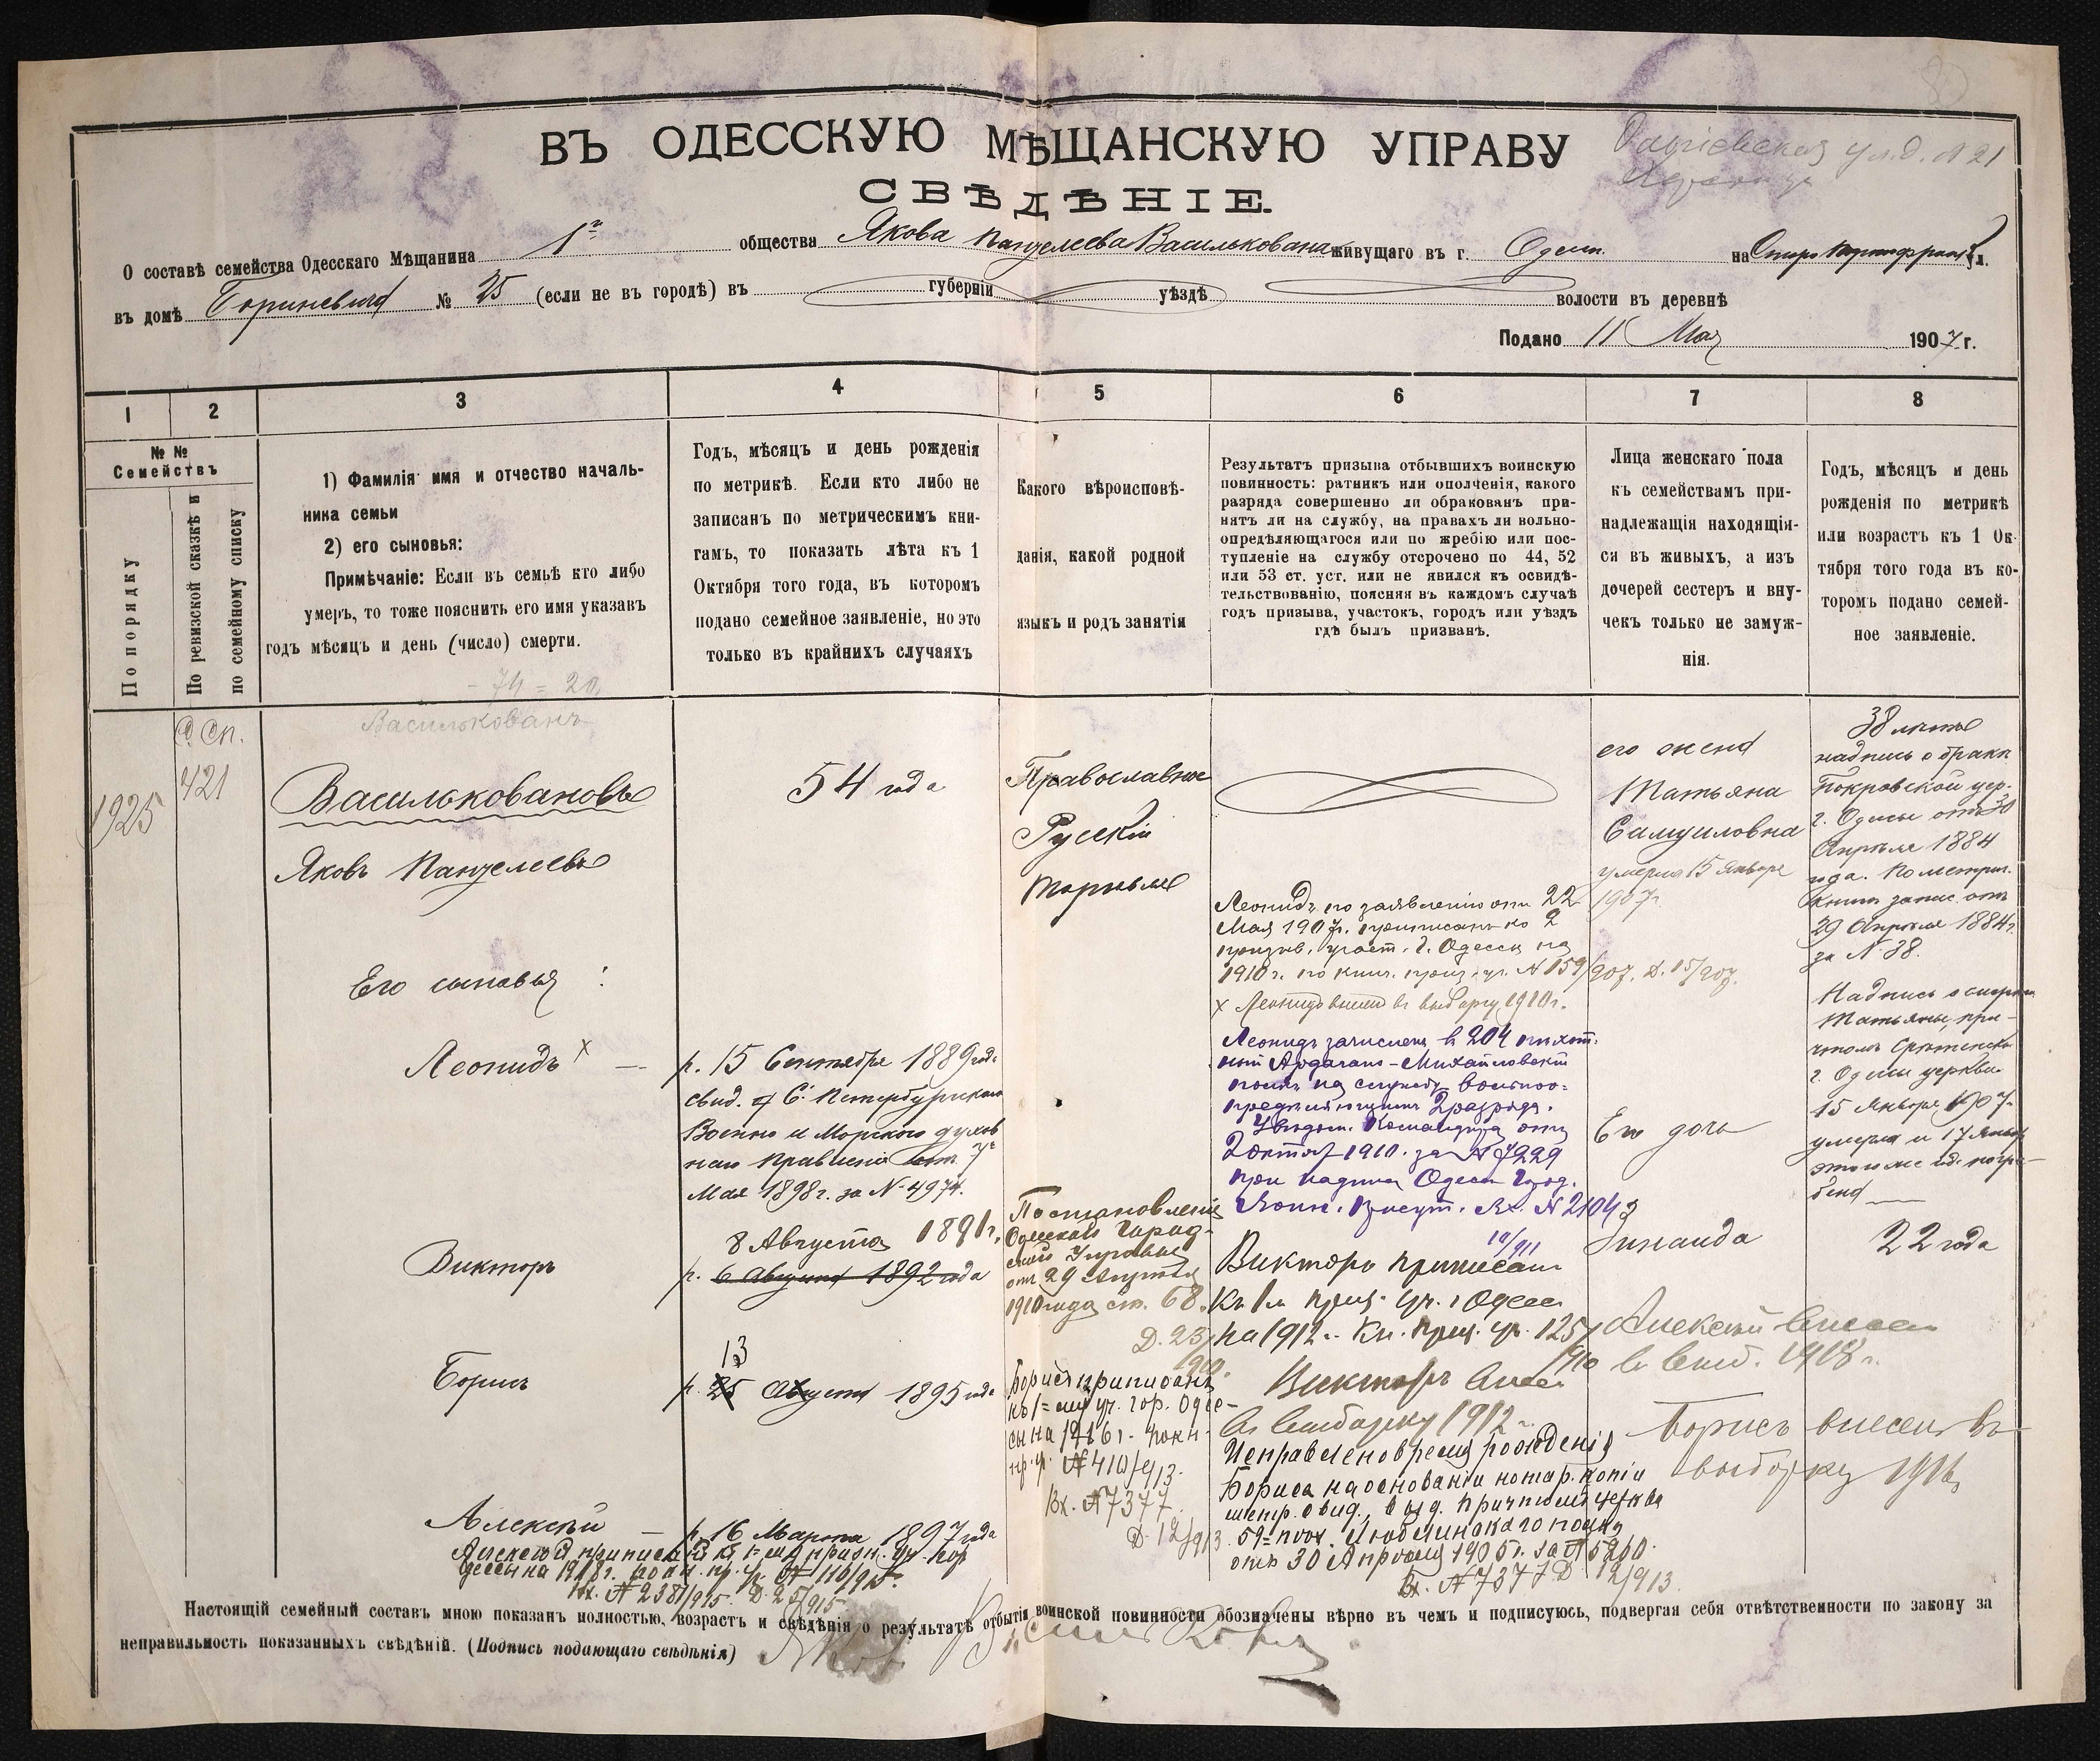 ВЪ ОДЕССКУЮ МѢЩАНСКУЮ УПРАВУ
ул. д. № 21
СВѢДѢНІЕ.
О составѣ семейства Одесскаго Мѣщанина 1го общества Якова Пантелеева Василькована живущаго въ г. Одессѣ на
въ домѣ № 25 (если не въ городѣ) въ губерніи уѣздѣ волости въ деревнѣ
Подано 11 Мая 1907 г.
1 2 3 4 5 6 7 8
№ №
Семействъ
По порядку
По ревизской сказкѣ и
по семейному списку
1) Фамилія имя и отчество началь-
ника семьи
2) его сыновья:
Примѣчаніе: Если въ семьѣ кто либо
умеръ, то тоже пояснить его имя указавъ
годъ мѣсяцъ и день (число) смерти.
Годъ, мѣсяцъ и день рожденія
по метрикѣ. Если кто либо не
записанъ по метрическимъ кни-
гамъ, то показать лѣта къ 1
Октября того года, въ которомъ
подано семейное заявленіе, но это
только въ крайнихъ случаяхъ
Какого вѣроисповѣ-
данія, какой родной
языкъ и родъ занятія
Результатъ призыва отбывшихъ воинскую
повинность: ратникъ или ополченія, какого
разряда совершенно ли обракованъ при-
нятъ ли на службу, на правахъ ли вольно-
опредѣляющагося или по жребію или пос-
тупленіе на службу отсрочено по 44, 52
или 53 ст. уст. или не явился къ освидѣ-
тельствованію, поясняя въ каждомъ случаѣ
годъ призыва, участокъ, городъ или уѣздъ
гдѣ былъ призванъ.
Лица женскаго пола
къ семействамъ при-
надлежащія находящія-
ся въ живыхъ, а изъ
дочерей сестеръ и вну-
чекъ только не замуж-
нія.
Годъ, мѣсяцъ и день
рожденія по метрикѣ
или возрастъ къ 1 Ок-
тября того года въ ко-
торомъ подано семей-
ное заявленіе.
- 74 = 20
Василькованъ
1925
С. Сп.
421
Васильковановъ
Яковъ Пантелеевъ
Его сыновья :
Леонидъ x
Викторъ
Борисъ
Алексѣй
54 года
р. 15 Сентября 1889 года
свид. С. Петербургскаго
Военно и Морского духов
наго Правленія отъ 7го
Мая 1898 г. за № 4974.
8 Августа 1891 г.
р. 6 Августа 1892 года
13
р. 25 Августа 1895 года
р. 16 Марта 1897 года
Алексѣй приписанъ къ 1=му призн. уч. гор
Одессы на 1918 г. по кн. пр. уч. № 110/915.
Вх. № 2381/915. Д. 25/915.
Православное
Русскій
торговля
Постановленіе
Одесской Город-
ской Управы
отъ 29 Апрѣля
1910 года ст. 68.
Д. 23/910.
Борисъ приписанъ
къ 1=му уч. гор. Одес-
сы на 1916 г. по кн.
пр. уч. № 410/913.
Вх. № 7377
Д. 12/913.
Леонидъ по заявленію отъ 22
Мая 1907 г. приписанъ ко 2
призыв. участ. г. Одессы на
1910 г. по книг. приз. уч. № 159/907. Д. 15/907.
x Леонидъ внесен въ выборку 1910 г.
Леонидъ зачисленъ въ 204 пѣхот.
ный Ардагано-Михайловскій
полкъ на службу вольноо-
предѣляющимся 2 разряда.
Увѣдом. Командира отъ
2 октяб 1910. за № 7229
при надписи Одесск Город.
Воин. Присут. Вх. № 21043
10/911
Викторъ приписанъ
къ 1му приз. уч. г Одессы
на 1912 г. Кн. приз. уч. 125/910
Викторъ внесен
въ выборку 1912 г.
Исправлено время рожденія
Бориса на основаніи нотар. копіи
метр. свид., выд. Причтомъ церкви
59=пѣх. Люблинскаго полка
отъ 30 Апрѣля 1905 г. за № 5260.
Вх. № 7377 Д 12/913.
его жена
Татьяна
Самуиловна
умерла 15 Января
1907 г.
Его дочь
Зинаида
Алексѣй внесен
въ выб. 1918 г.
Борисъ внесен въ
выборку 1916
38 лѣтъ
надпись о бракѣ
Покровской цер.
г. Одессы отъ 30
Апрѣля 1884
года. По метрич.
книг. запис. отъ
29 Апрѣля 1884 г.
за № 38.
Надпись о смерти
Татьяны, при-
чтомъ Срѣтенской
г. Одессы церкви
15 Января 1907
умерла и 17 Янв
этого же года погре-
бена
22 года
Настоящій семейный составъ мною показанъ полностью, возрастъ и свѣдѣнія о результатѣ отбытія воинской повинности обозначены вѣрно въ чемъ и подписуюсь, подвергая себя отвѣтственности по закону за
неправильность показанныхъ свѣдѣній. (Подпись подающаго свѣдѣнія)